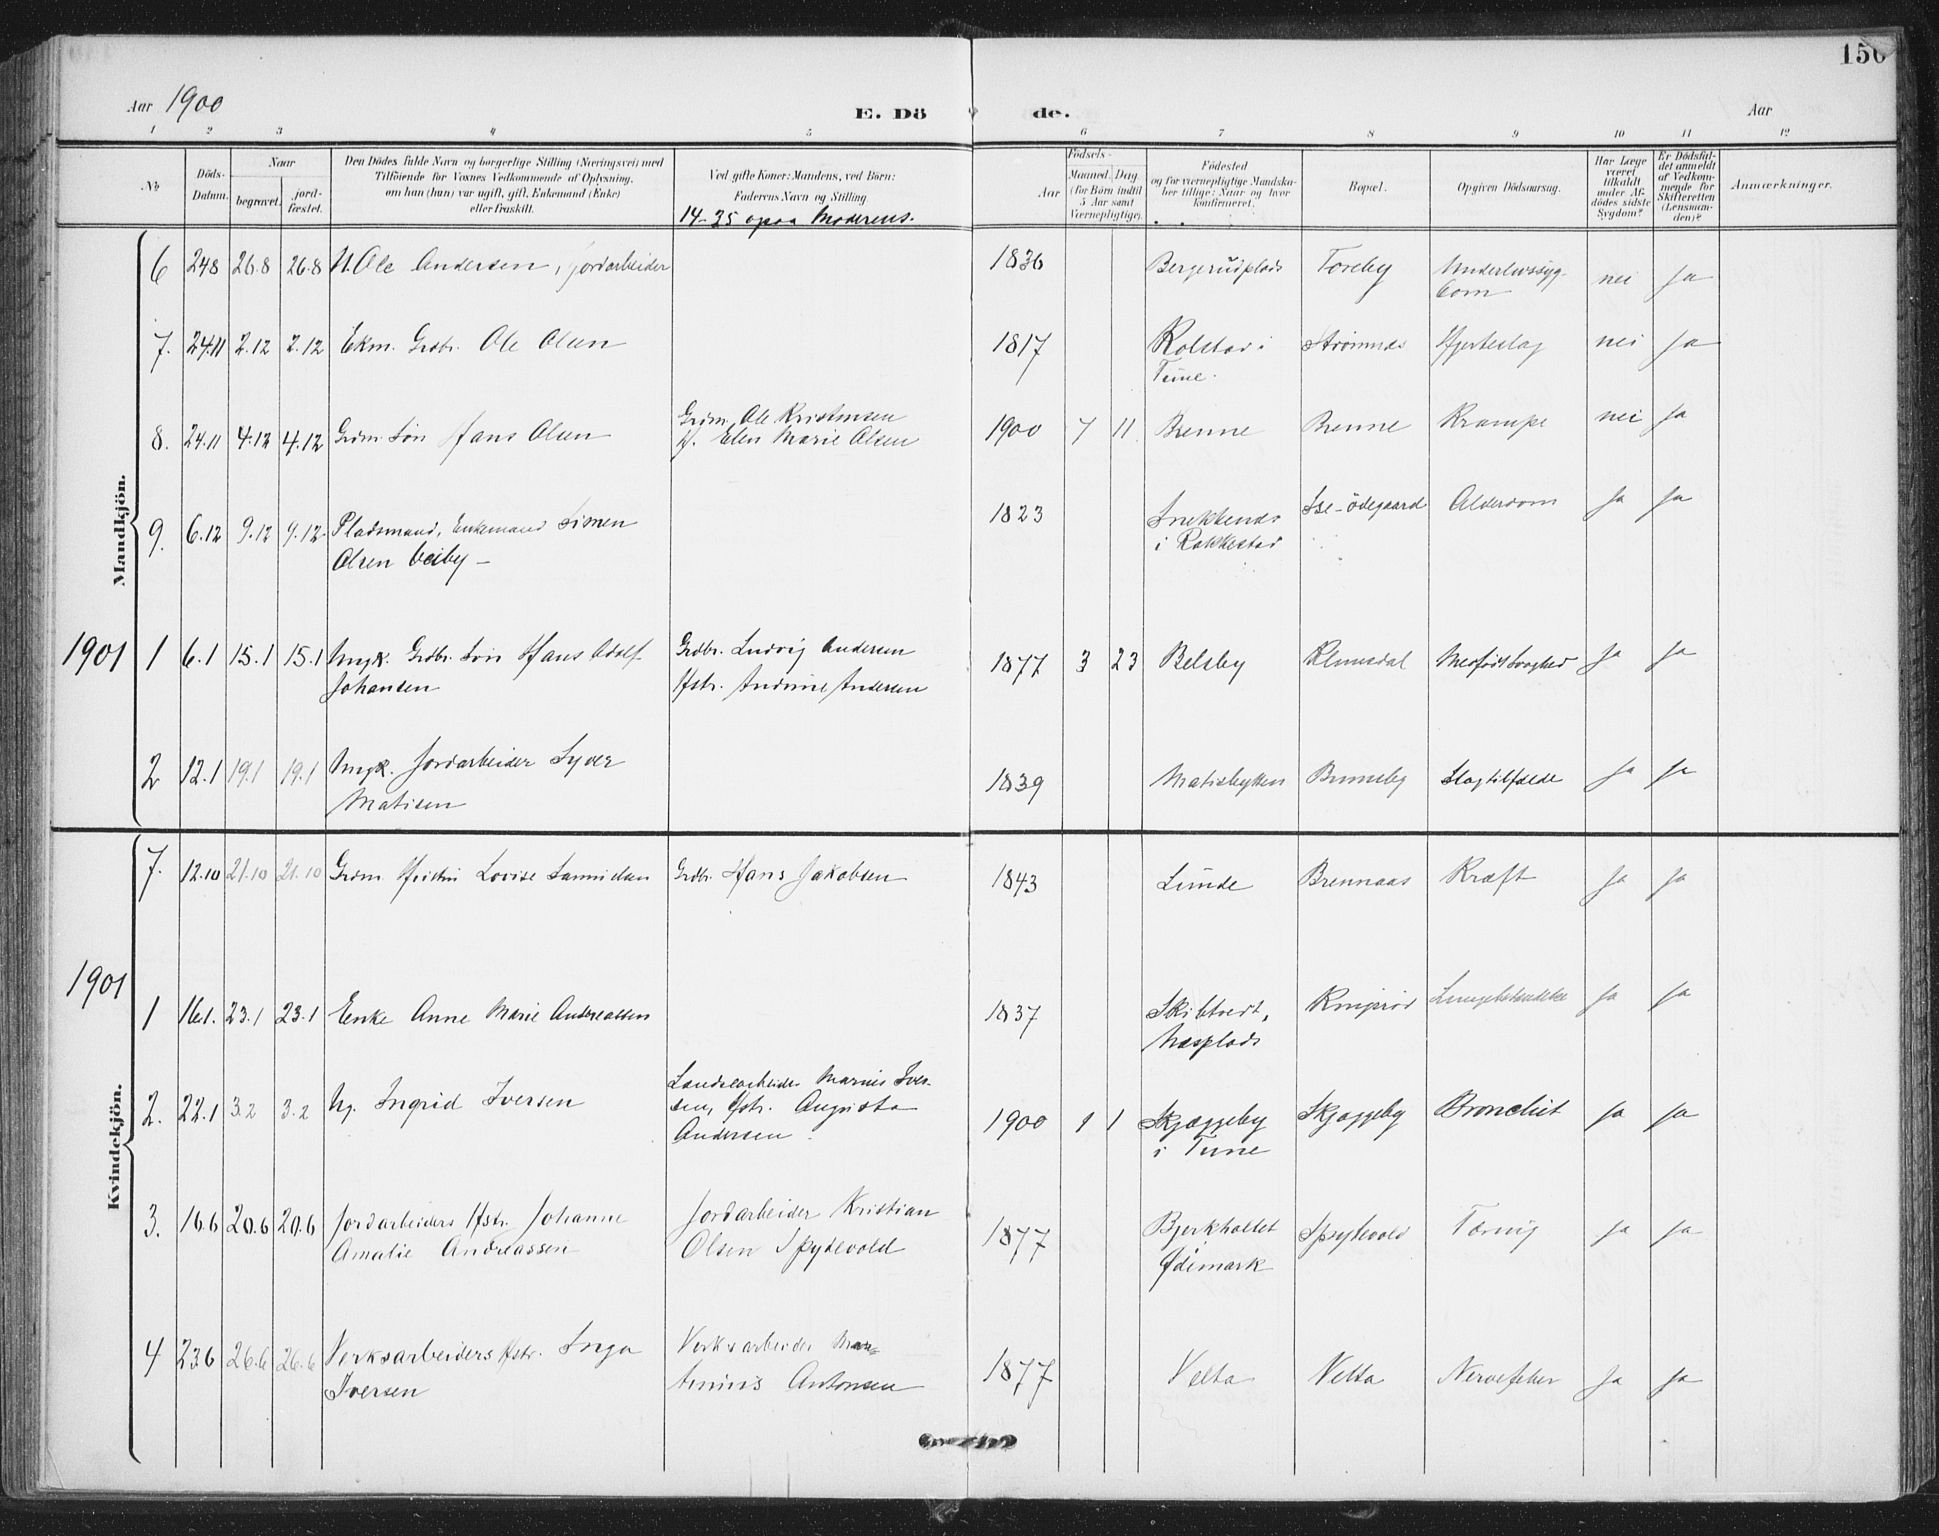 150
Aar 1900
E. Dö de.
Aar
1 2 3 4 5 6 7 8 9 10 11 12
No
Döds-Datum.
Naar
begravet.
jord-fæstet.
Den Dödes fulde Navn og borgerlige Stilling (Næringsvei) med
Tilföiende for Voxnes Vedkommende af Oplysning,
om han (hun) var ugift, gift, Enkemand (Enke)
eller fraskilt.
Ved gifte Koner: Mandens, ved Börn:
Faderens Navn og Stilling
14-35 opaa Moderens.
Födsels-
Aar
Maaned. Dag
(for Börn indtil
5 Aar samt
Værnepligtige).
Födested
og for værnepligtige Mandska-
ber tillige: Naar og hvor
konfirmeret.
Bopæl.
Opgiven Dödsaarsag.
Har Læge
været
tilkaldt
under Af-
dödes sidste
Sygdom?
Er Dödsfal-
det anmeldt
af Vedkom-
mende for
Skifteretten
(Lensman-
den)?
Anmærkninger.
Mandkjön.
6 24.8 26.8 26.8 Ole Andersen, jordarbeider 1836 Bergerudplads Toreby nei Ja
7. 24.11 2.12 2.12 Ekm. Grdbr. Ole Olsen 1817 Kolstad i Strømnes Hjerteslag nei Ja
Tune.
8. 24.11 4.12 4.12 Grdm. Søn Hans Olsen Grdm. Ole Kristensen 1900 7 11 Brenne Brenne Krampe nei Ja
Elen Marie Olsen
9. 6.12 9.12 9.12 Pladsmand, Enkemand Simen 1823 Snekkenes Ise-ödegaard Alderdom Ja Ja
Olsen Veiby - i Rakkestad
1901 1 6.1 15.1 15.1 Ungk. Grdbr. Søn Hans Adolf Grdbr. Ludvig Andersen 1877 3 23 Belsby Klunsdal Medfødt Svaghed Ja Ja
Johansen Hstr. Andrine Andersen
2 12.1 19.1 19.1 Ungk. Jordarbeider Syver 1839 Matisbytten Brunsby Slagtilfælde Ja Ja
Matisen
Kvindekjön.
7. 12.10 21.10 21.10 Grdm. Hustru Lovise Samuelsen Grdbr. Hans Jakobsen 1843 Lunde Brennaas Kræft Ja Ja
1901
1 16.1. 23.1 23.1 Enke Anne Marie Andreassen 1837 Skibtvedt, Lungebetændelse Ja Ja
Næsplads
2. 22.1 3.2 3.2 Ug. Ingrid Iversen Landsarbeider Marius Iver-
sen, Hstr. Augusta 1900 1 1 Skjæggeby Skjæggeby Bronchit Ja Ja
Andersen. i Tune
3. 16.6 20.6 20.6 Jordarbeiders Hstr. Johanne Jordarbeider Kristian 1877 Bjerkholtet Spydevold Tæring Ja Ja
Amalie Andreassen Olsen Spydevold Ødemark
4 23.6 26.6 26.6 Verksarbeiders Hstr. Inga Verksarbeider Mar- 1877 Velta Velta Nervefeber Ja Ja
Iversen tinius Antonsen